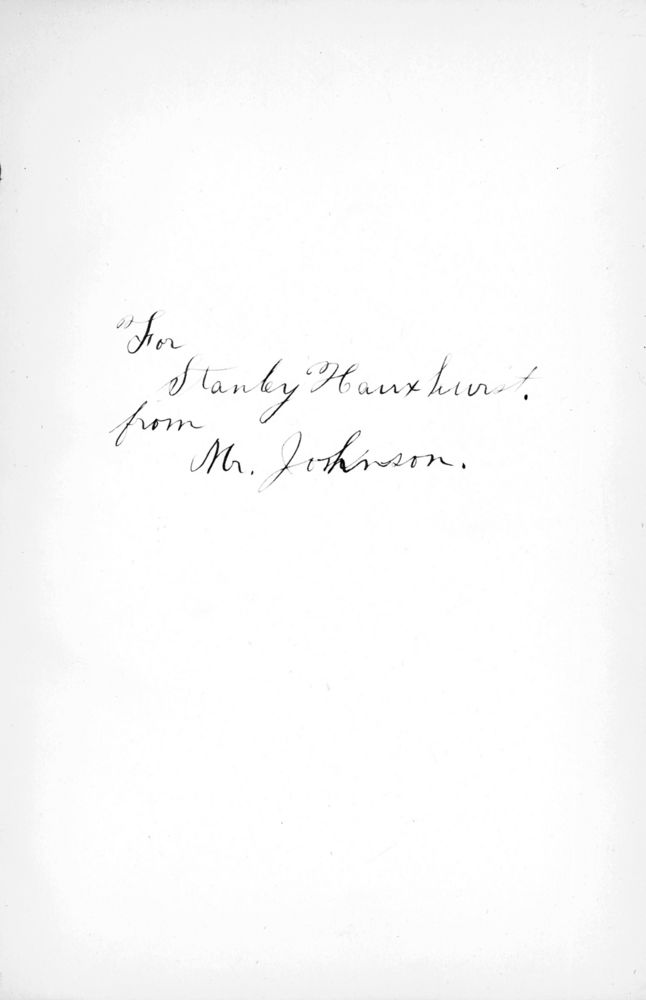 For
Stanley Hauxhurst.
from
Mr. Johnson.